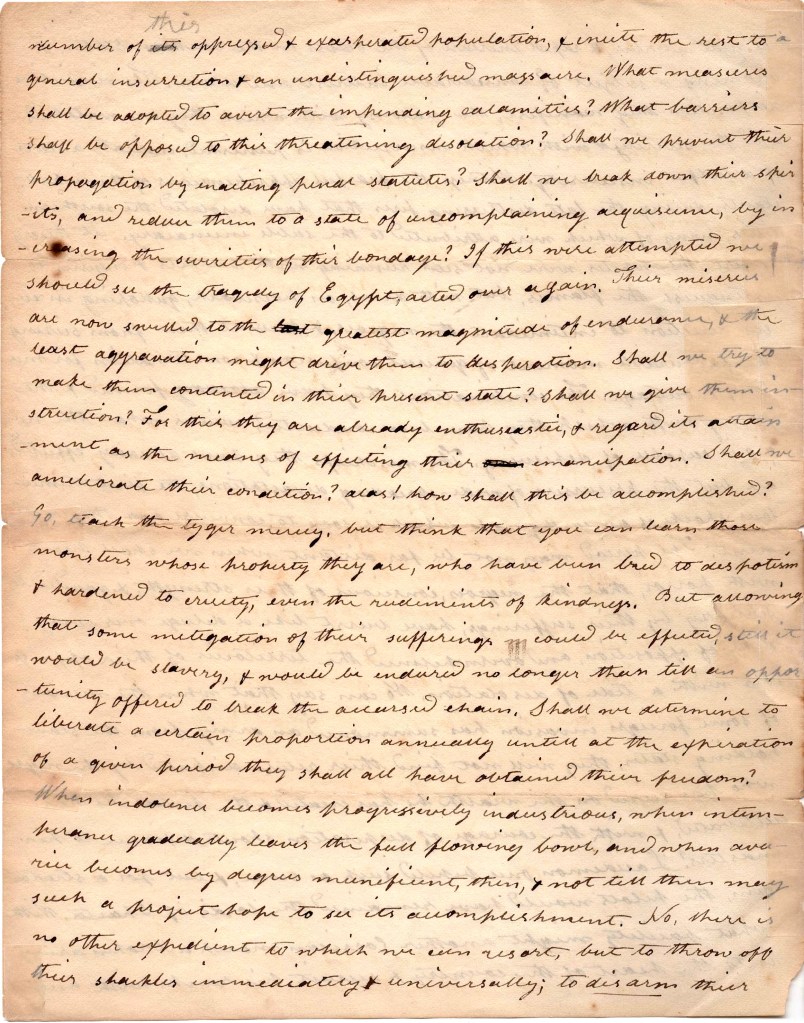 this
number of its oppressed & exasperated population, & incite the rest to a
general insurretion & an undistinguished massacre. What measures
shall be adopted to avert the impending calamities? What barriers
shall be opposed to this threatening desolation? Shall we prevent their
propagation by enacting penal statutes? Shall we break down their spir
-its, and reduce them to a state of uncomplaining acquiscence, by in
-creasing the severities of their bondage? If this were attempted we
should see the tragedy of Egypt, acted over again. Their miseries
are now swelled to the last greatest magnitude of endurance, & the
least aggravation might drive them to desperation. Shall we try to
make them contented in their present state? Shall we give them in-
struction? For this they are already enthusiastic, & regard its attain
-ment as the means of effecting their emancipation. Shall we
ameliorate their condition? alas! how shall this be accomplished?
Go, teach the tyger mercy, but think that you can learn those
monsters whose property they are, who have been bred to despotism
& hardened to cruelty, even the rudiments of kindness. But allowing
that some mitigation of their sufferings could be effected, still it
would be slavery, & would be endured no longer than till an oppor
-tunity offered to break the accursed chain. Shall we determine to
liberate a certain proportion annually untill at the expiration
of a given period they shall all have obtained their freedom?
When indolence becomes progressively industrious, when intem-
perance gradually leaves the full flowing bowl, and when ava-
rice becomes by degrees munificent, then, & not till then may
such a project hope to see its accomplishment. No, there is
no other expedient to which we can resort, but to throw off
their shackles immediately & universally; to disarm their